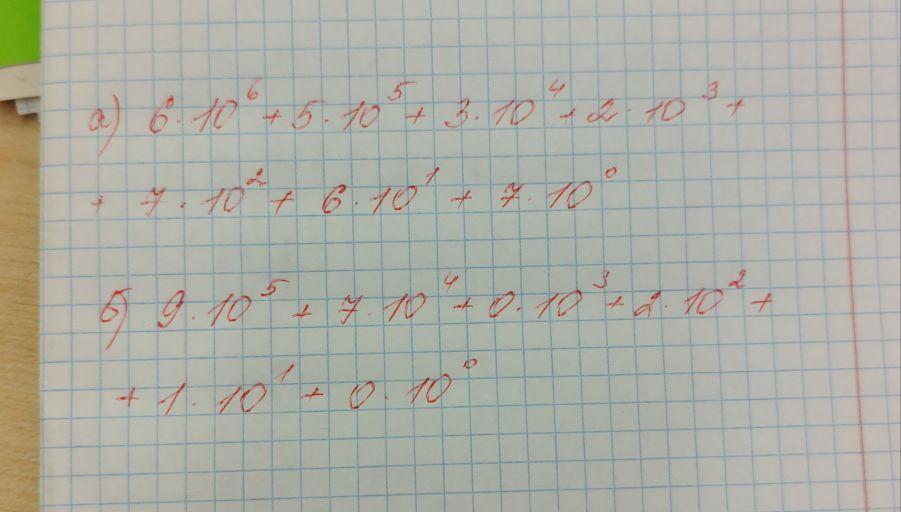 а) 6·10⁶ + 5·10⁵ + 3·10⁴ + 2·10³ +
+ 7·10² + 6·10¹ + 7·10⁰
б) 9·10⁵ + 7·10⁴ + 0·10³ + 2·10² +
+ 1·10¹ + 0·10⁰